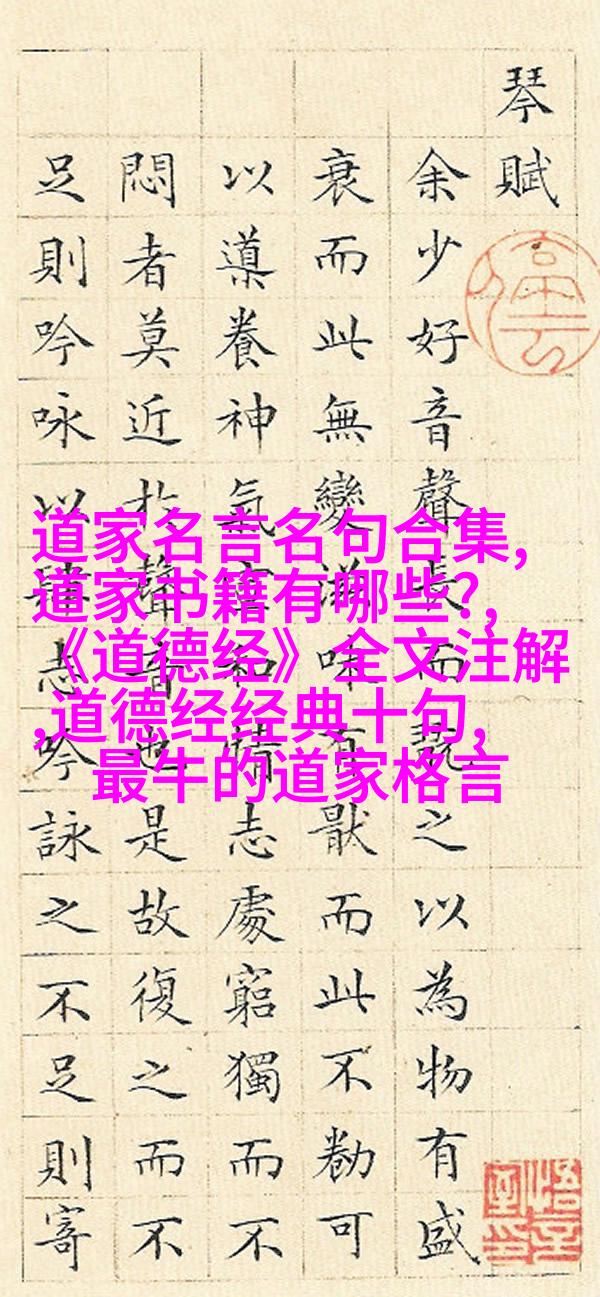 琴賦
余少好音聲長而翫之以為物有盛
衰而此無變滋味有猒而此不勌可
以導養神氣宣和情志處窮獨而不
悶者莫近於聲音也是故復之而不
足則吟咏以肆志吟詠之不足則寄
道家名言名句合集,
道家书籍有哪些?,
《道德经》全文注解
,道德经经典十句,
最牛的道家格言